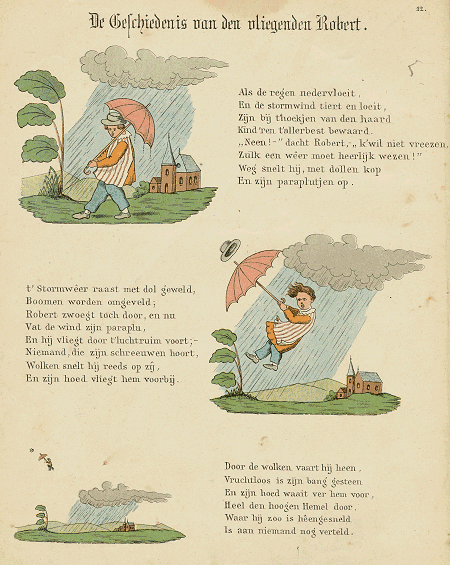 22.
De Geschiedenis van den vliegenden Robert.
Als de regen nedervloeit,
En de stormwind tiert en loeit,
Zijn bij t'hoekjen van den haard
Kind'ren t'allerbest bewaard.
„Neen!-" dacht Robert, -„k'wil niet vreezen,
Zulk een wéer moet heerlijk wezen!"
Weg snelt hij, met dollen kop
En zijn paraplutjen op.
t' Stormwéer raast met dol geweld,
Boomen worden omgeveld;
Robert zwoegt toch door, en nu
Vat de wind zijn paraplu,
En hij vliegt door t'luchtruim voort;-
Niemand, die zijn schreeuwen hoort,
Wolken snelt hij reeds op zij,
En zijn hoed vliegt hem voorbij.
Door de wolken vaart hij heen,
Vruchtloos is zijn bang gesteen
En zijn hoed waait ver hem voor,
Heel den hoogen Hemel door.
Waar hij zoo is héengesneld
Is aan niemand nog verteld.